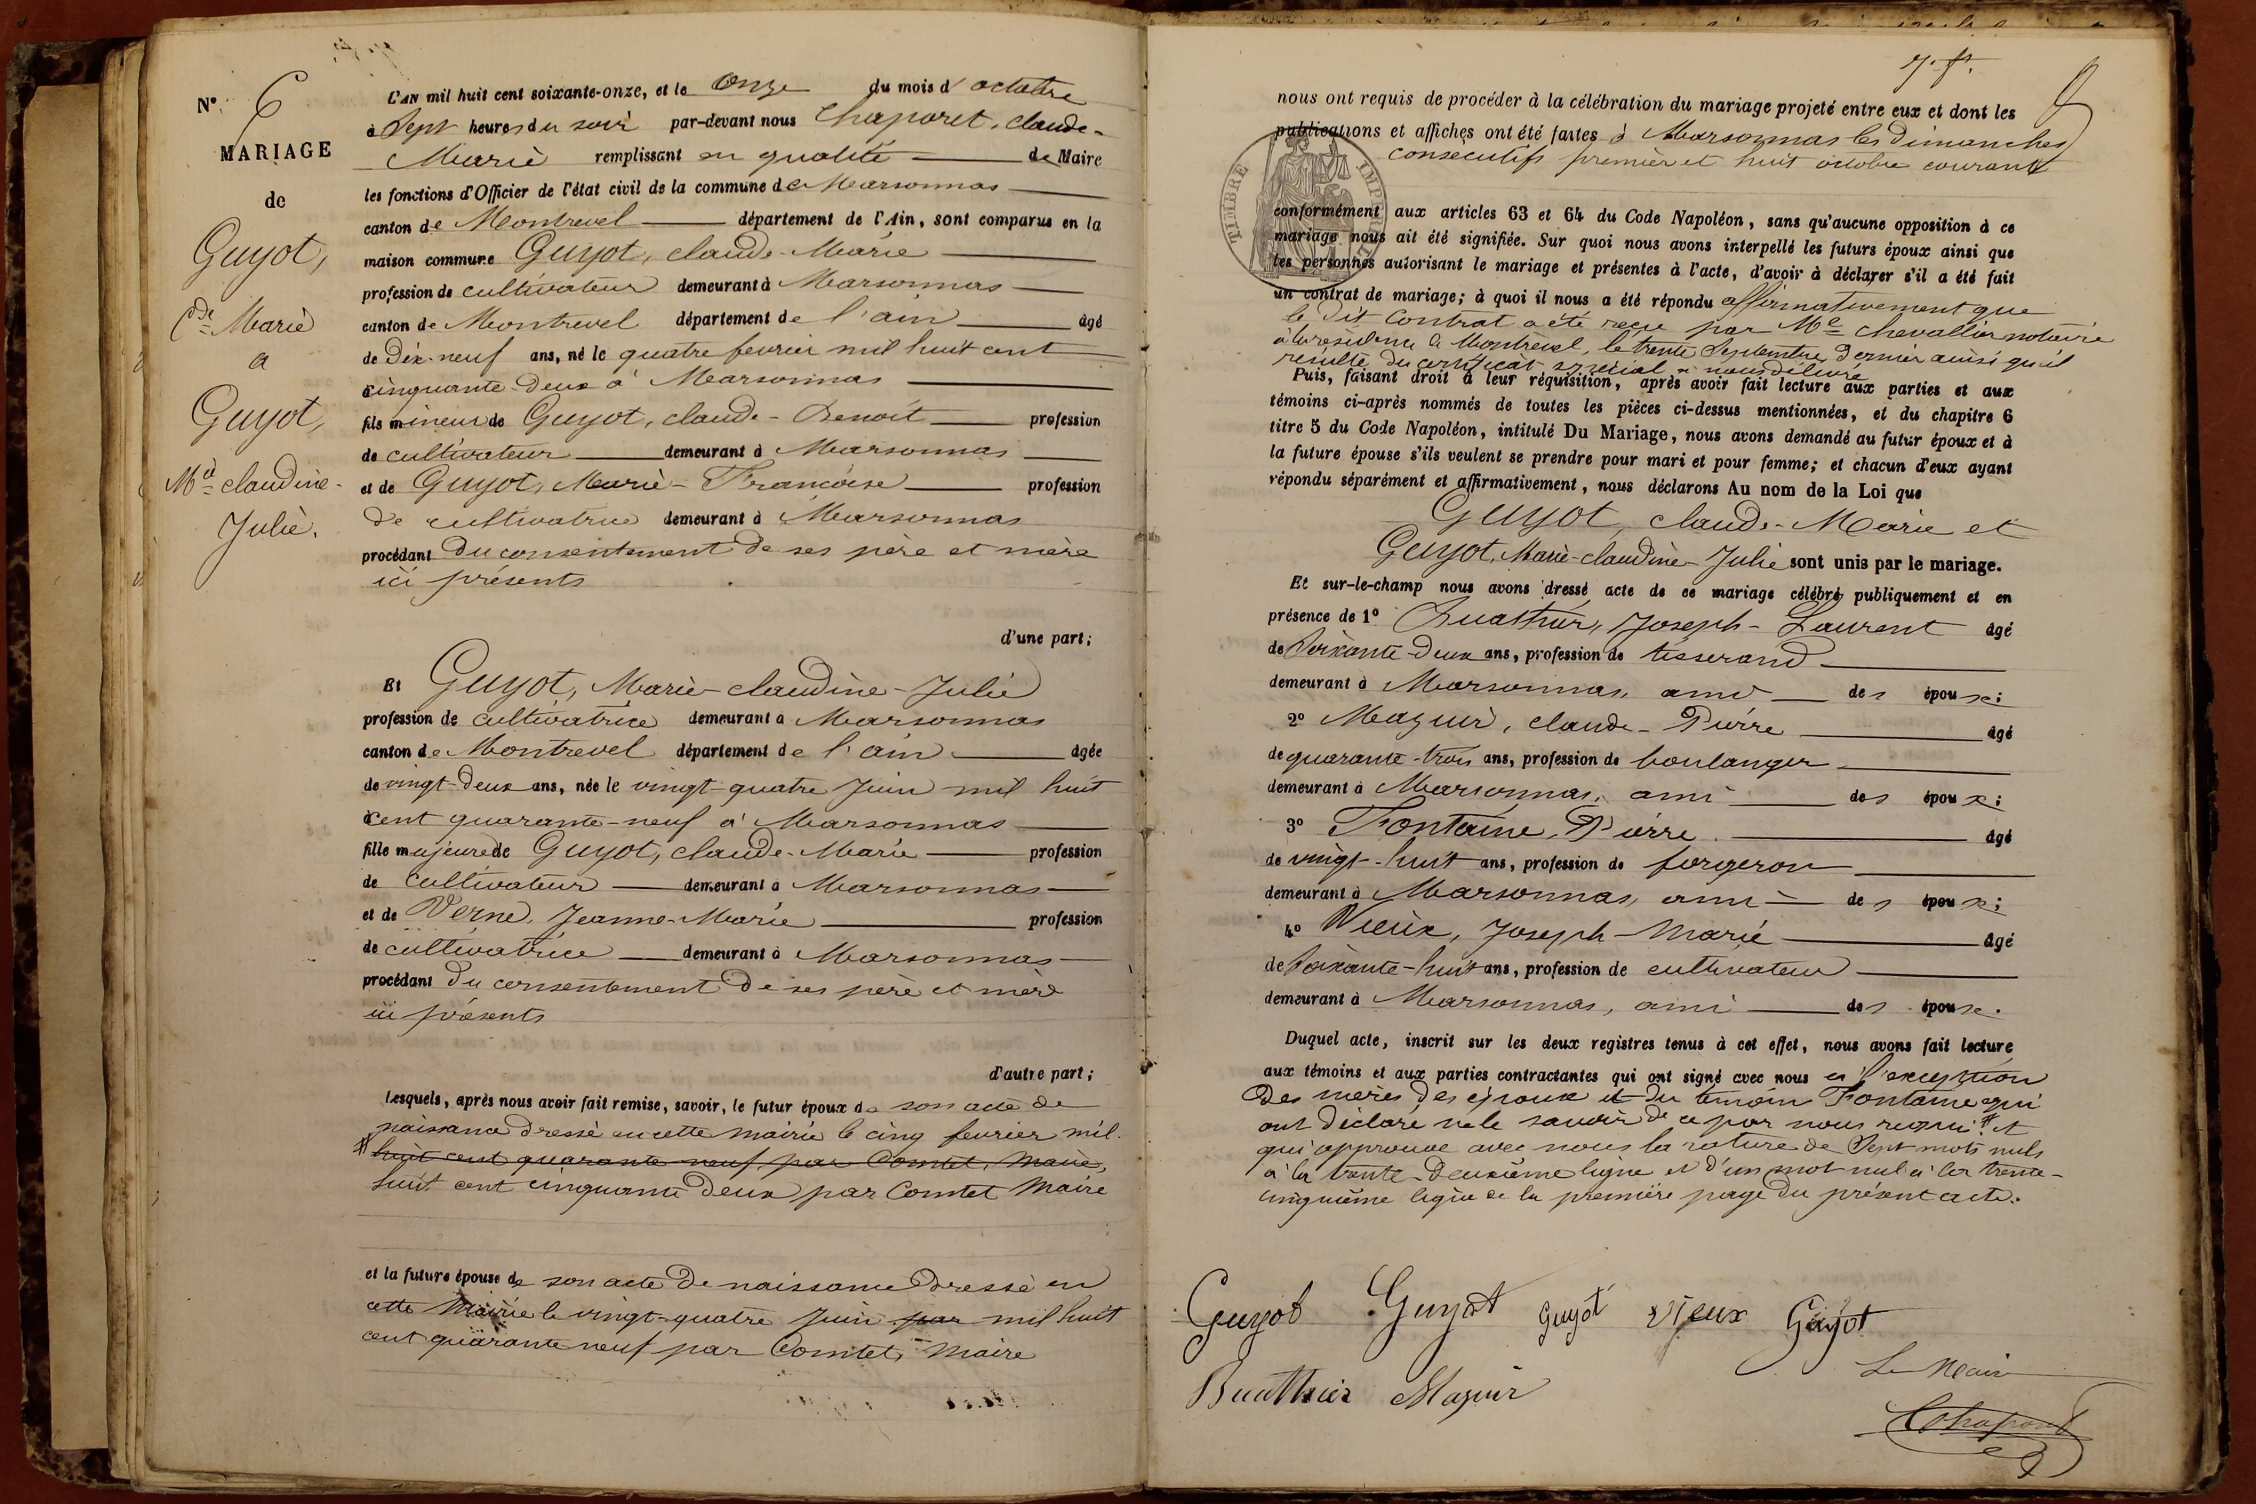 N° 6
MARIAGE
de
Guyot,
Cde Marie
a
Guyot,
Mie claudine-
Julie.
L'AN mil huit cent soixante-onze, et le onze du mois d'octobre
à Sept heures du soir par-devant nous Chaporet, claude-
Marie remplissant en qualité de Maire
les fonctions d'Officier de l'état civil de la commune de Marsonnas
canton de Montrevel département de l'Ain, sont comparus en la
maison commune Guyot, claude-Marie
profession de cultivateur demeurant à Marsonnas
canton de Montrevel département de l'ain âgé
de Dix-neuf ans, né le quatre fevrier mil huit cent
cinquante-deux à Marsonnas
fils mineur de Guyot, claude-Benoit profession
de cultivateur demeurant à Marsonnas
et de Guyot, Marie-Francoise profession
de cultivatrice demeurant à Marsonnas
procédant du consentement de ses père et mère
ici présents
d'une part;
Et Guyot, Marie-claudine-Julie
profession de cultivatrice demeurant à Marsonnas
canton de Montrevel département de l'ain âgée
de vingt-deux ans, née le vingt-quatre Juin mil huit
cent quarante-neuf à Marsonnas
fille majeure de Guyot, claude-Marie profession
de cultivateur demeurant à Marsonnas
et de Verne, Jeanne-Marie profession
de cultivatrice demeurant à Marsonnas
procédant du consentement de ses père et mère
ici présents
d'autre part;
Lesquels, après nous avoir fait remise, savoir, le futur époux de son acte de
naissance dressé en cette mairie le cinq fevrier mil
huit cent quarante neuf, par Comtet, Maire,
huit cent cinquante deux par Comtet Maire
et la future épouse de son acte de naissance dressé en
cette Mairie le vingt-quatre Juin par mil huit
cent quarante neuf par Comtet, Maire
7. ft.
nous ont requis de procéder à la célébration du mariage projeté entre eux et dont les
publications et affiches ont été faites à Marsonnas les Dimanches
consécutifs premier et huit octobre courant
TIMBRE IMPERIAL
conformément aux articles 63 et 64 du Code Napoléon, sans qu'aucune opposition à ce
mariage nous ait été signifiée. Sur quoi nous avons interpellé les futurs époux ainsi que
les personnes autorisant le mariage et présentes à l'acte, d'avoir à déclarer s'il a été fait
un contrat de mariage; à quoi il nous a été répondu affirmativement que
le dit contrat a été reçu par Me chevallier notaire
à la résidence de Montrevel, le trente Septembre dernier ainsi qu'il
résulte du certificat spécial à nous délivré
Puis, faisant droit à leur réquisition, après avoir fait lecture aux parties et aux
témoins ci-après nommés de toutes les pièces ci-dessus mentionnées, et du chapitre 6
titre 5 du Code Napoléon, intitulé Du Mariage, nous avons demandé au futur époux et à
la future épouse s'ils veulent se prendre pour mari et pour femme; et chacun d'eux ayant
répondu séparément et affirmativement, nous déclarons Au nom de la Loi que
Guyot, claude-Marie et
Guyot, Marie-claudine-Julie sont unis par le mariage.
Et sur-le-champ nous avons dressé acte de ce mariage célébré publiquement et en
présence de 1° Buathier, Joseph-Laurent âgé
de Soixante-deux ans, profession de tisserand
demeurant à Marsonnas, ami des époux;
2° Maguir, claude-Pierre âgé
de quarante-trois ans, profession de boulanger
demeurant à Marsonnas, ami des époux;
3° Fontaine, Pierre âgé
de vingt-huit ans, profession de forgeron
demeurant à Marsonnas, ami des époux;
4° Vieux, Joseph-Marie âgé
de Soixante-huit ans, profession de cultivateur
demeurant à Marsonnas, ami des époux.
Duquel acte, inscrit sur les deux registres tenus à cet effet, nous avons fait lecture
aux témoins et aux parties contractantes qui ont signé avec nous à l'exception
Des mères des époux et du témoin Fontaine qui
ont déclaré ne le savoir de ce par nous requis. et
qui approuve avec nous la rature de Sept mots nuls
à la trente-deuxième ligne et d'un mot nul à la trente-
cinquième ligne de la première page du présent acte.
Guyot Guyot Guyot vieux Guyot
Buathier Maguir
Le Maire
Chaporet